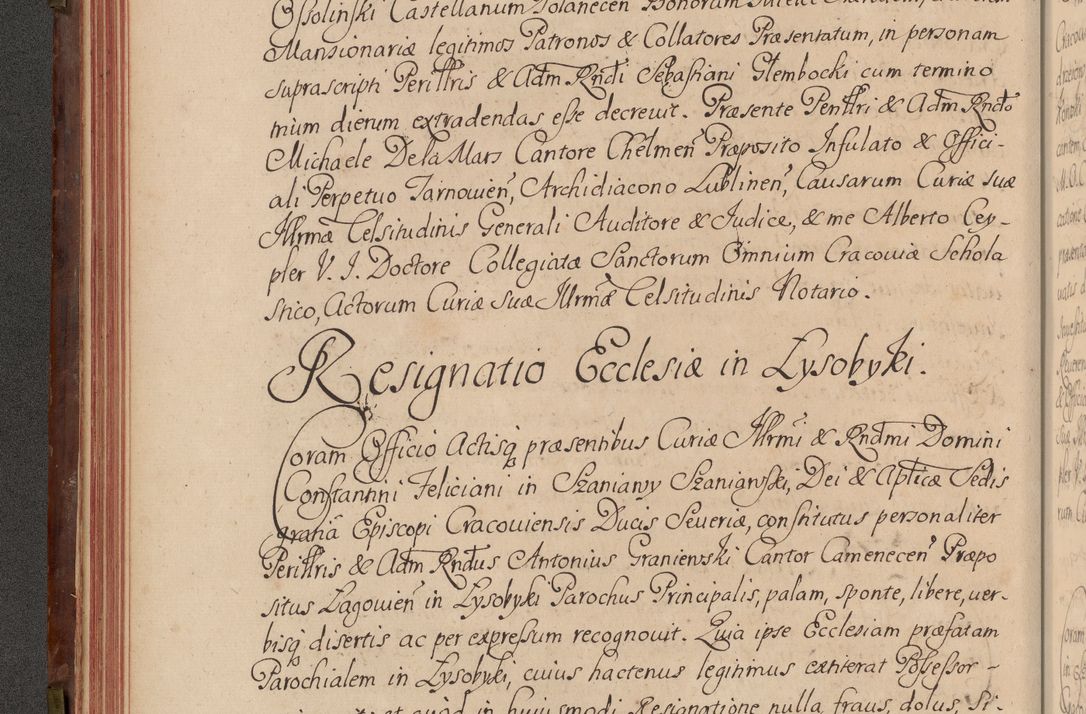 Ossolinski Castellanum Polanecen Bonorum
Mansionariæ legitimos Patronos & Collatores Præsentatum, in personam
suprascripti Perillris & Adm Rndi Sebastiani Glembocki cum termino
trium dierum extradendas esse decrevit. Præsente Perillri & Adm Rndo
Michaele De la Mars Cantore Chelmen Præposito Infulato & Offici-
ali Perpetuo Tarnovien, Archidiacono Lublinen, Causarum Curiæ suæ
Illrmæ Celsitudinis Generali Auditore & Judice, & me Alberto Cey-
pler V. J. Doctore Collegiatæ Sanctorum Omnium Cracoviæ Schola
stico, Actorum Curiæ suæ Illrmæ Celsitudinis Notario.
Resignatio Ecclesiæ in Lysobyki.
Coram Officio Actisq præsentibus Curiæ Illrmi & Rndmi Domini
Constantini Feliciani in Szaniawy Szaniawski, Dei & Aplicæ Sedis
gratiâ Episcopi Cracoviensis Ducis Severiæ, constitutus personaliter
Perillris & Adm Rndus Antonius Graniewski Cantor Camenecen Præpo
situs Lagovien in Lysobyki Parochus Principalis, palam, sponte, libere, ver-
bisq disertis ac per expressum recognovit. Quia ipse Ecclesiam præfatam
Parochialem in Lysobyki, cuius hactenus legitimus extiterat Possessor-
et quòd in huiusmodi Resignatione nulla fraus, dolus, Si-